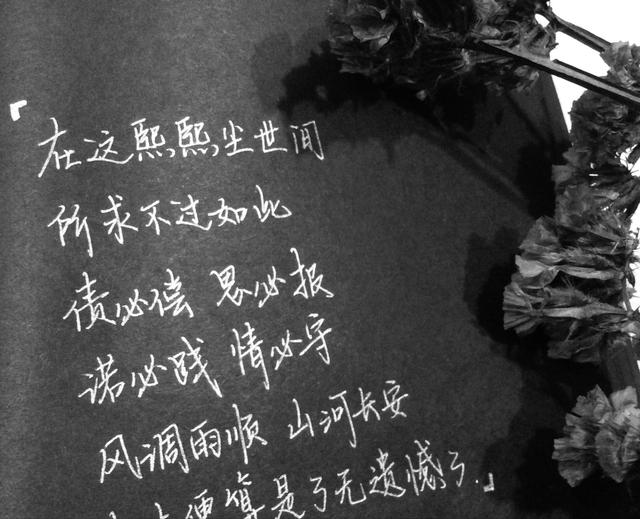 「在这熙熙尘世间
所求不过如此
债必偿 恩必报
诺必践 情必守
风调雨顺 山河长安
便算是了无遗憾了.」